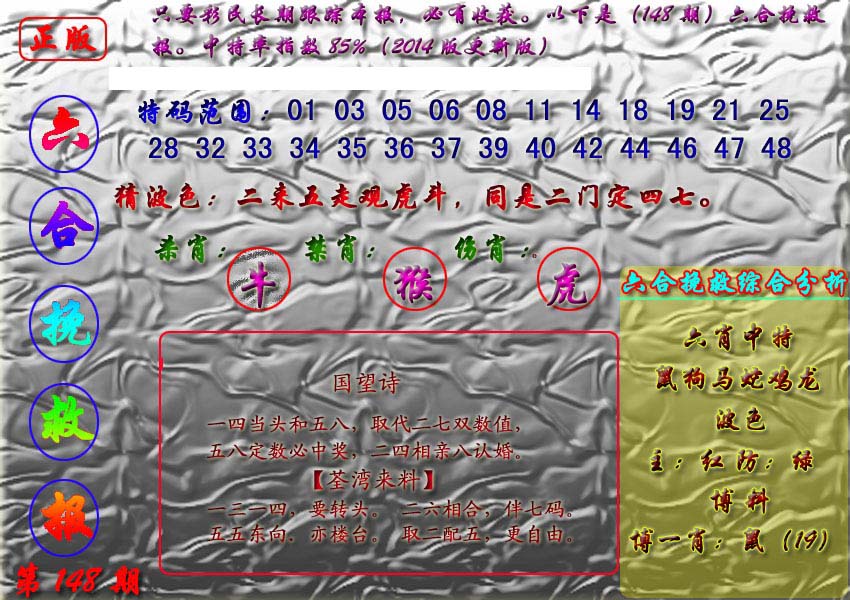 正版
只要彩民长期跟踪本报，必有收获。以下是（148期）六合挽救
报。中特率指数85%（2014版更新版）
六合挽救报
第148期
特码范围：01 03 05 06 08 11 14 18 19 21 25
28 32 33 34 35 36 37 39 40 42 44 46 47 48
猜波色：二来五走观虎斗，同是二门定四七。
杀肖：牛 禁肖：猴 伤肖：虎
国望诗
一四当头和五八，取代二七双数值，
五八定数必中奖，二四相亲八认婚。
【荃湾来料】
一三一四，要转头。 二六相合，伴七码。
五五东向，亦楼台。 取二配五，更自由。
六合挽救综合分析
六肖中特
鼠狗马蛇鸡龙
波色
主：红防：绿
博料
博一肖：鼠（19）